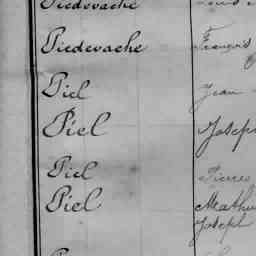 Piedevache
Piedevache François
Piel Jean
Piel Joseph
Piel Pierre
Piel Mathu
Joseph